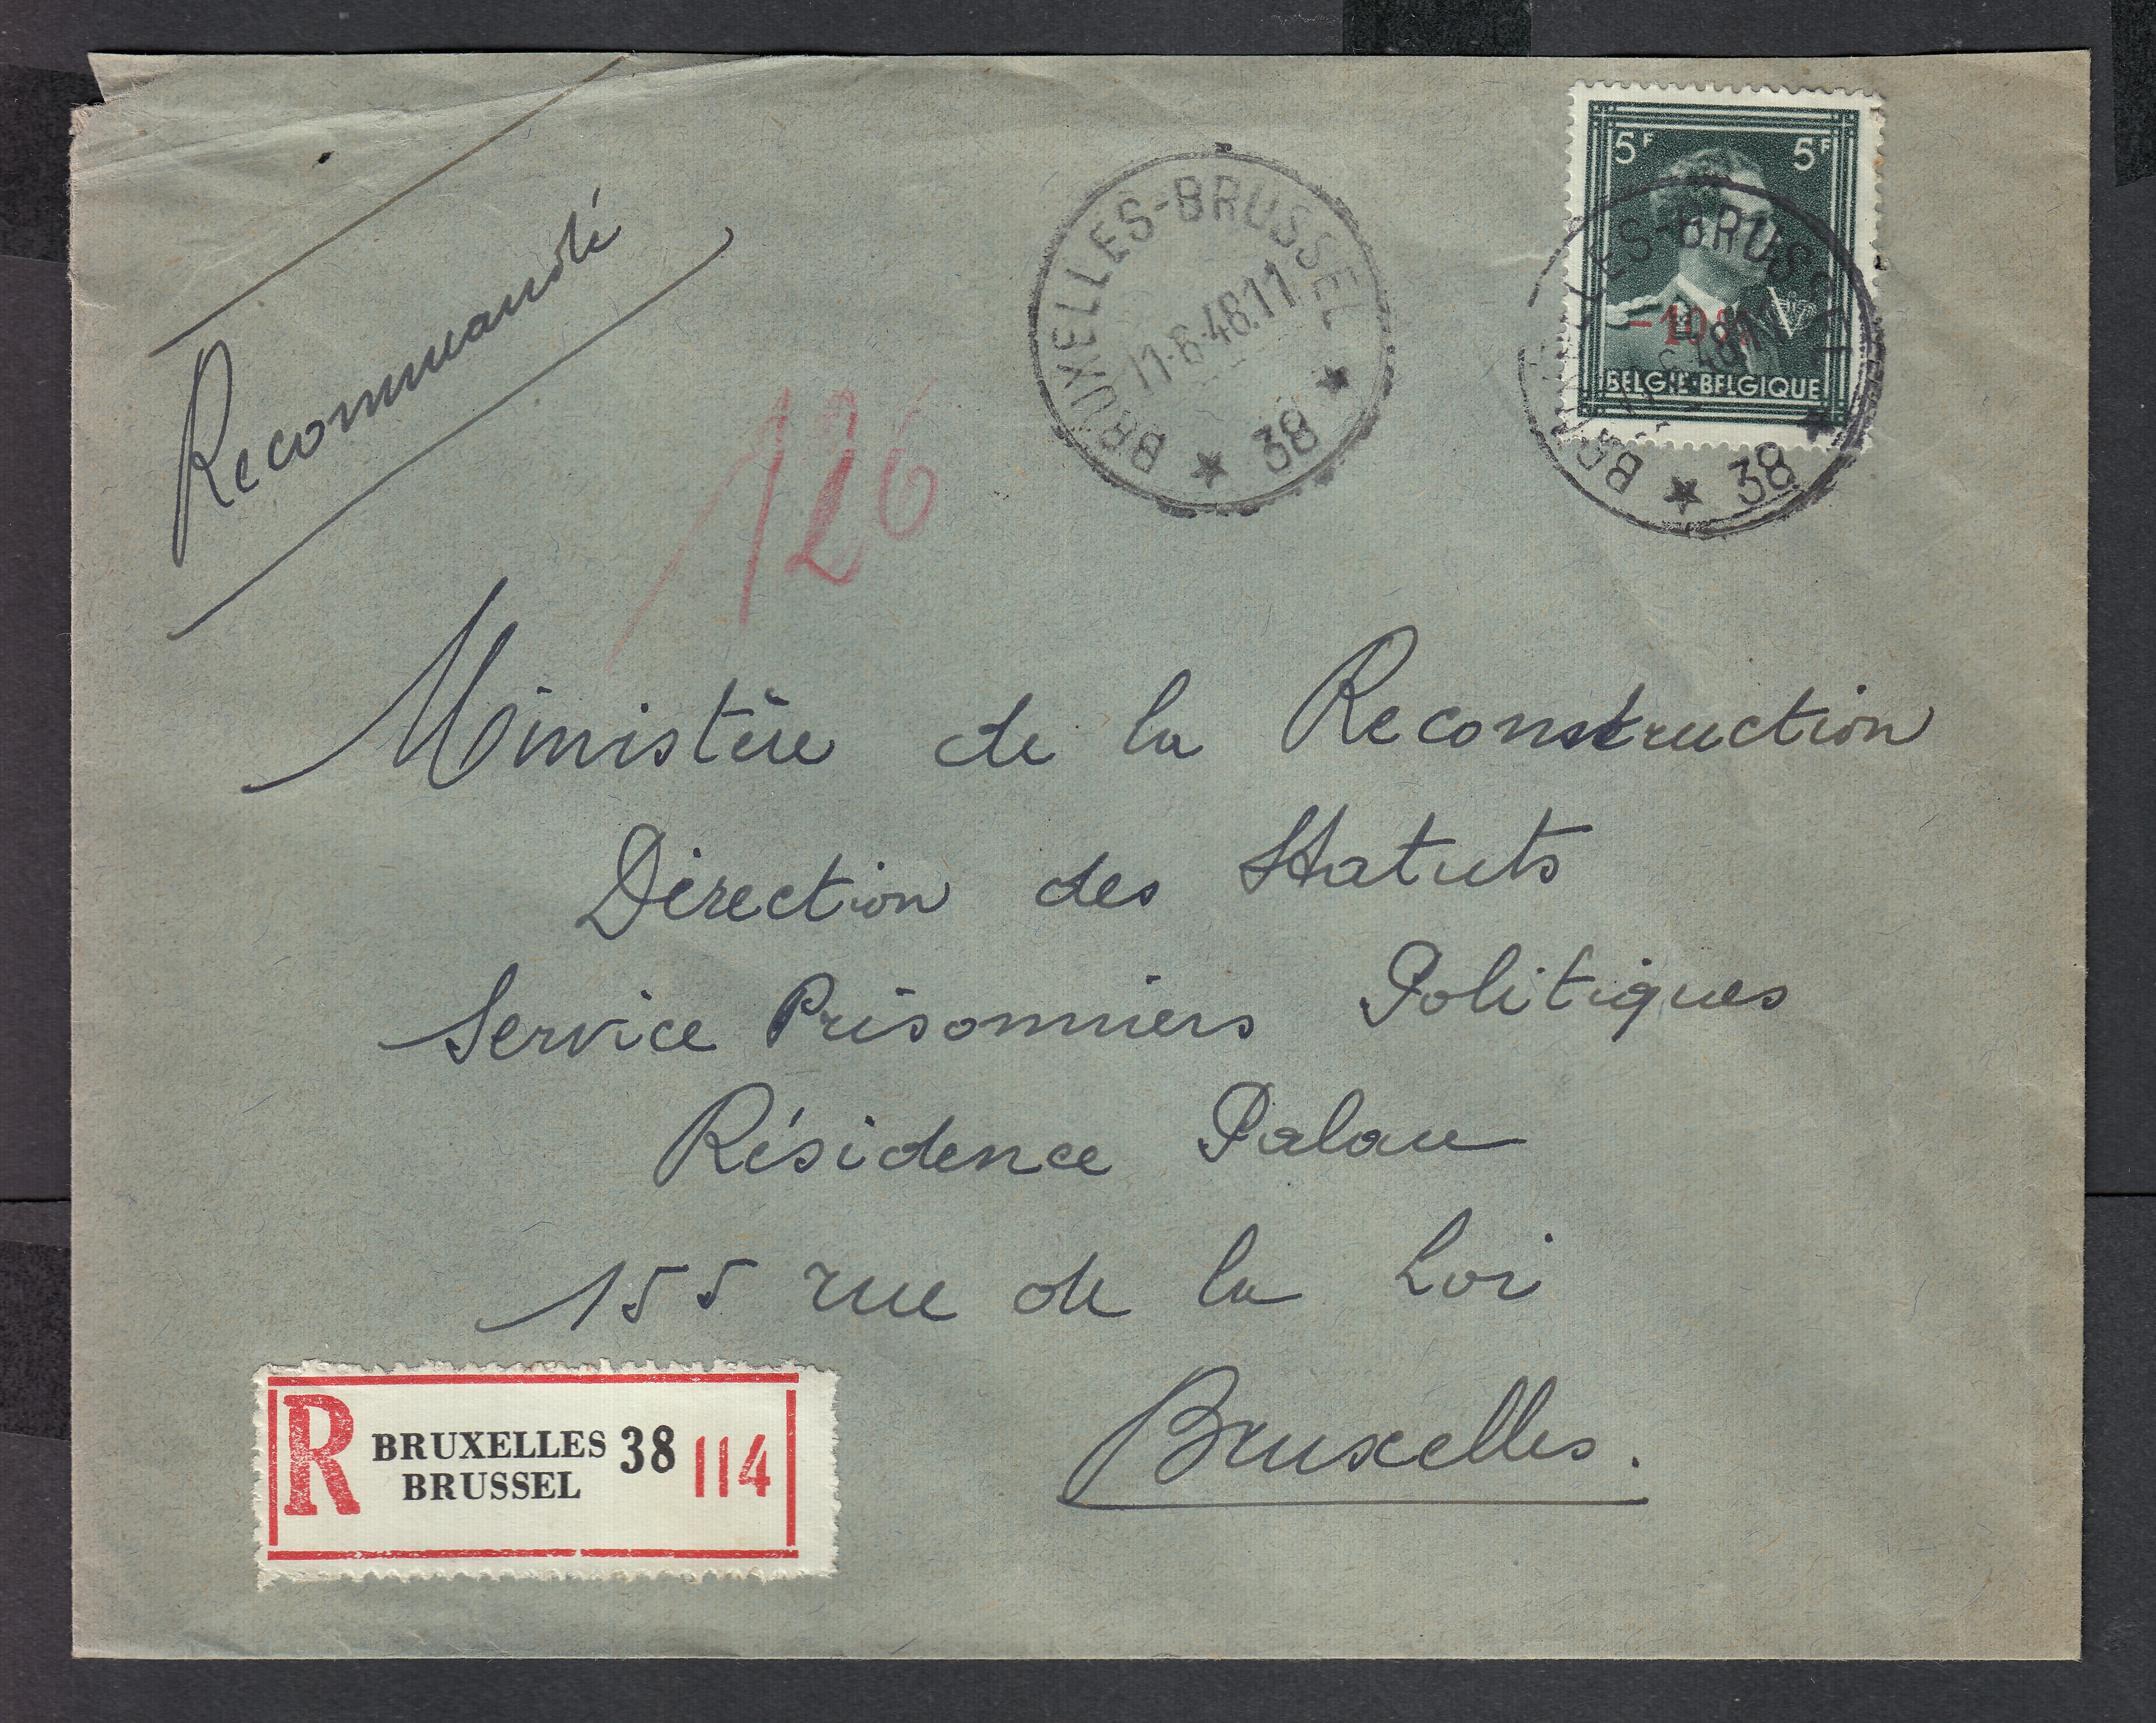 Recommandé
126
BRUXELLES-BRUSSEL
11-6-48.11
★ 38 ★
5F 5F
-10%
BELGIË·BELGIQUE
Ministère de la Reconstruction
Direction des Statuts
Service Prisonniers Politiques
Résidence Palace
155 rue de la Loi
Bruxelles.
R BRUXELLES 38 114
BRUSSEL